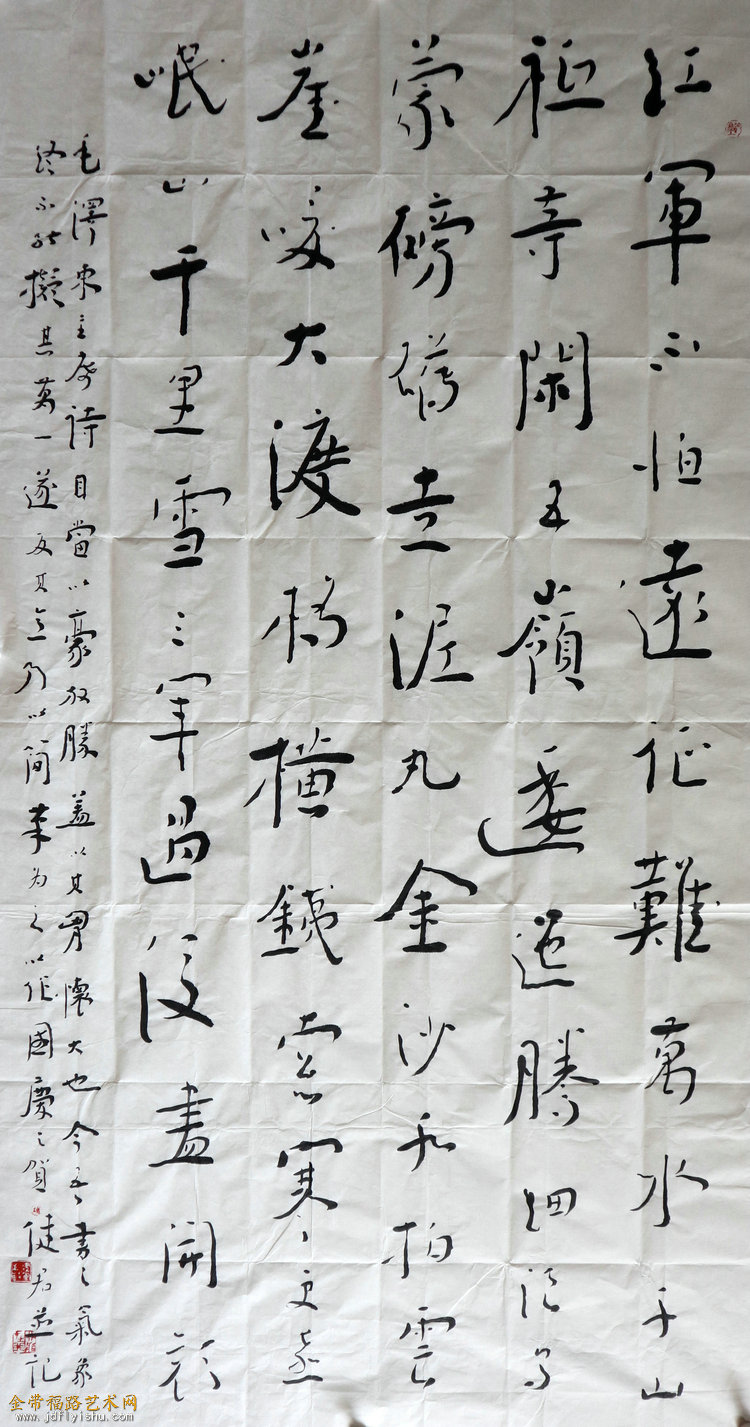 紅軍不怕遠征難萬水千山
祇等閑五嶺逶迤騰細浪烏
蒙磅礴走泥丸金沙水拍雲
崖暖大渡橋橫鐵索寒更喜
岷山千里雪三軍過後盡開顏
毛澤東主席詩自當以豪放勝蓋以其胸懷大也今吾書之氣象
終不能擬其萬一遂反其意乃以簡筆為之以作國慶之賀健君並記
金带福路艺术网
www.jdflyishu.com